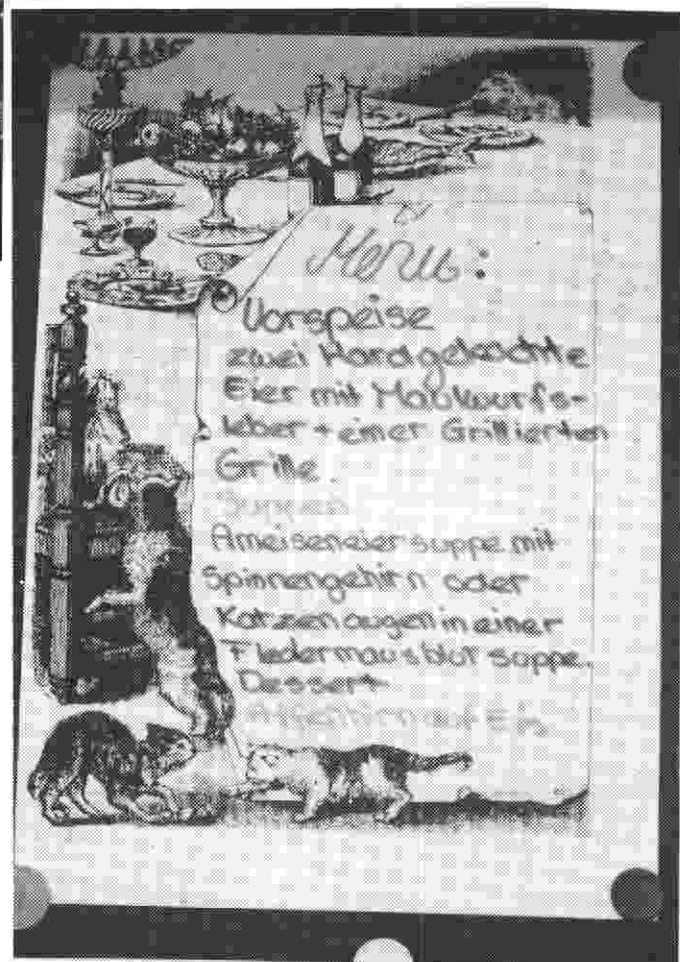 Menu:
Vorspeise
zwei Hardgekochte
Eier mit Maulwurfs-
leber + einer Grillierten
Grille.
Suppen
Ameiseneiersuppe mit
Spinnengehirn oder
Katzenaugen in einer
Fledermausblutsuppe.
Dessert
Affenhirn auf Eis